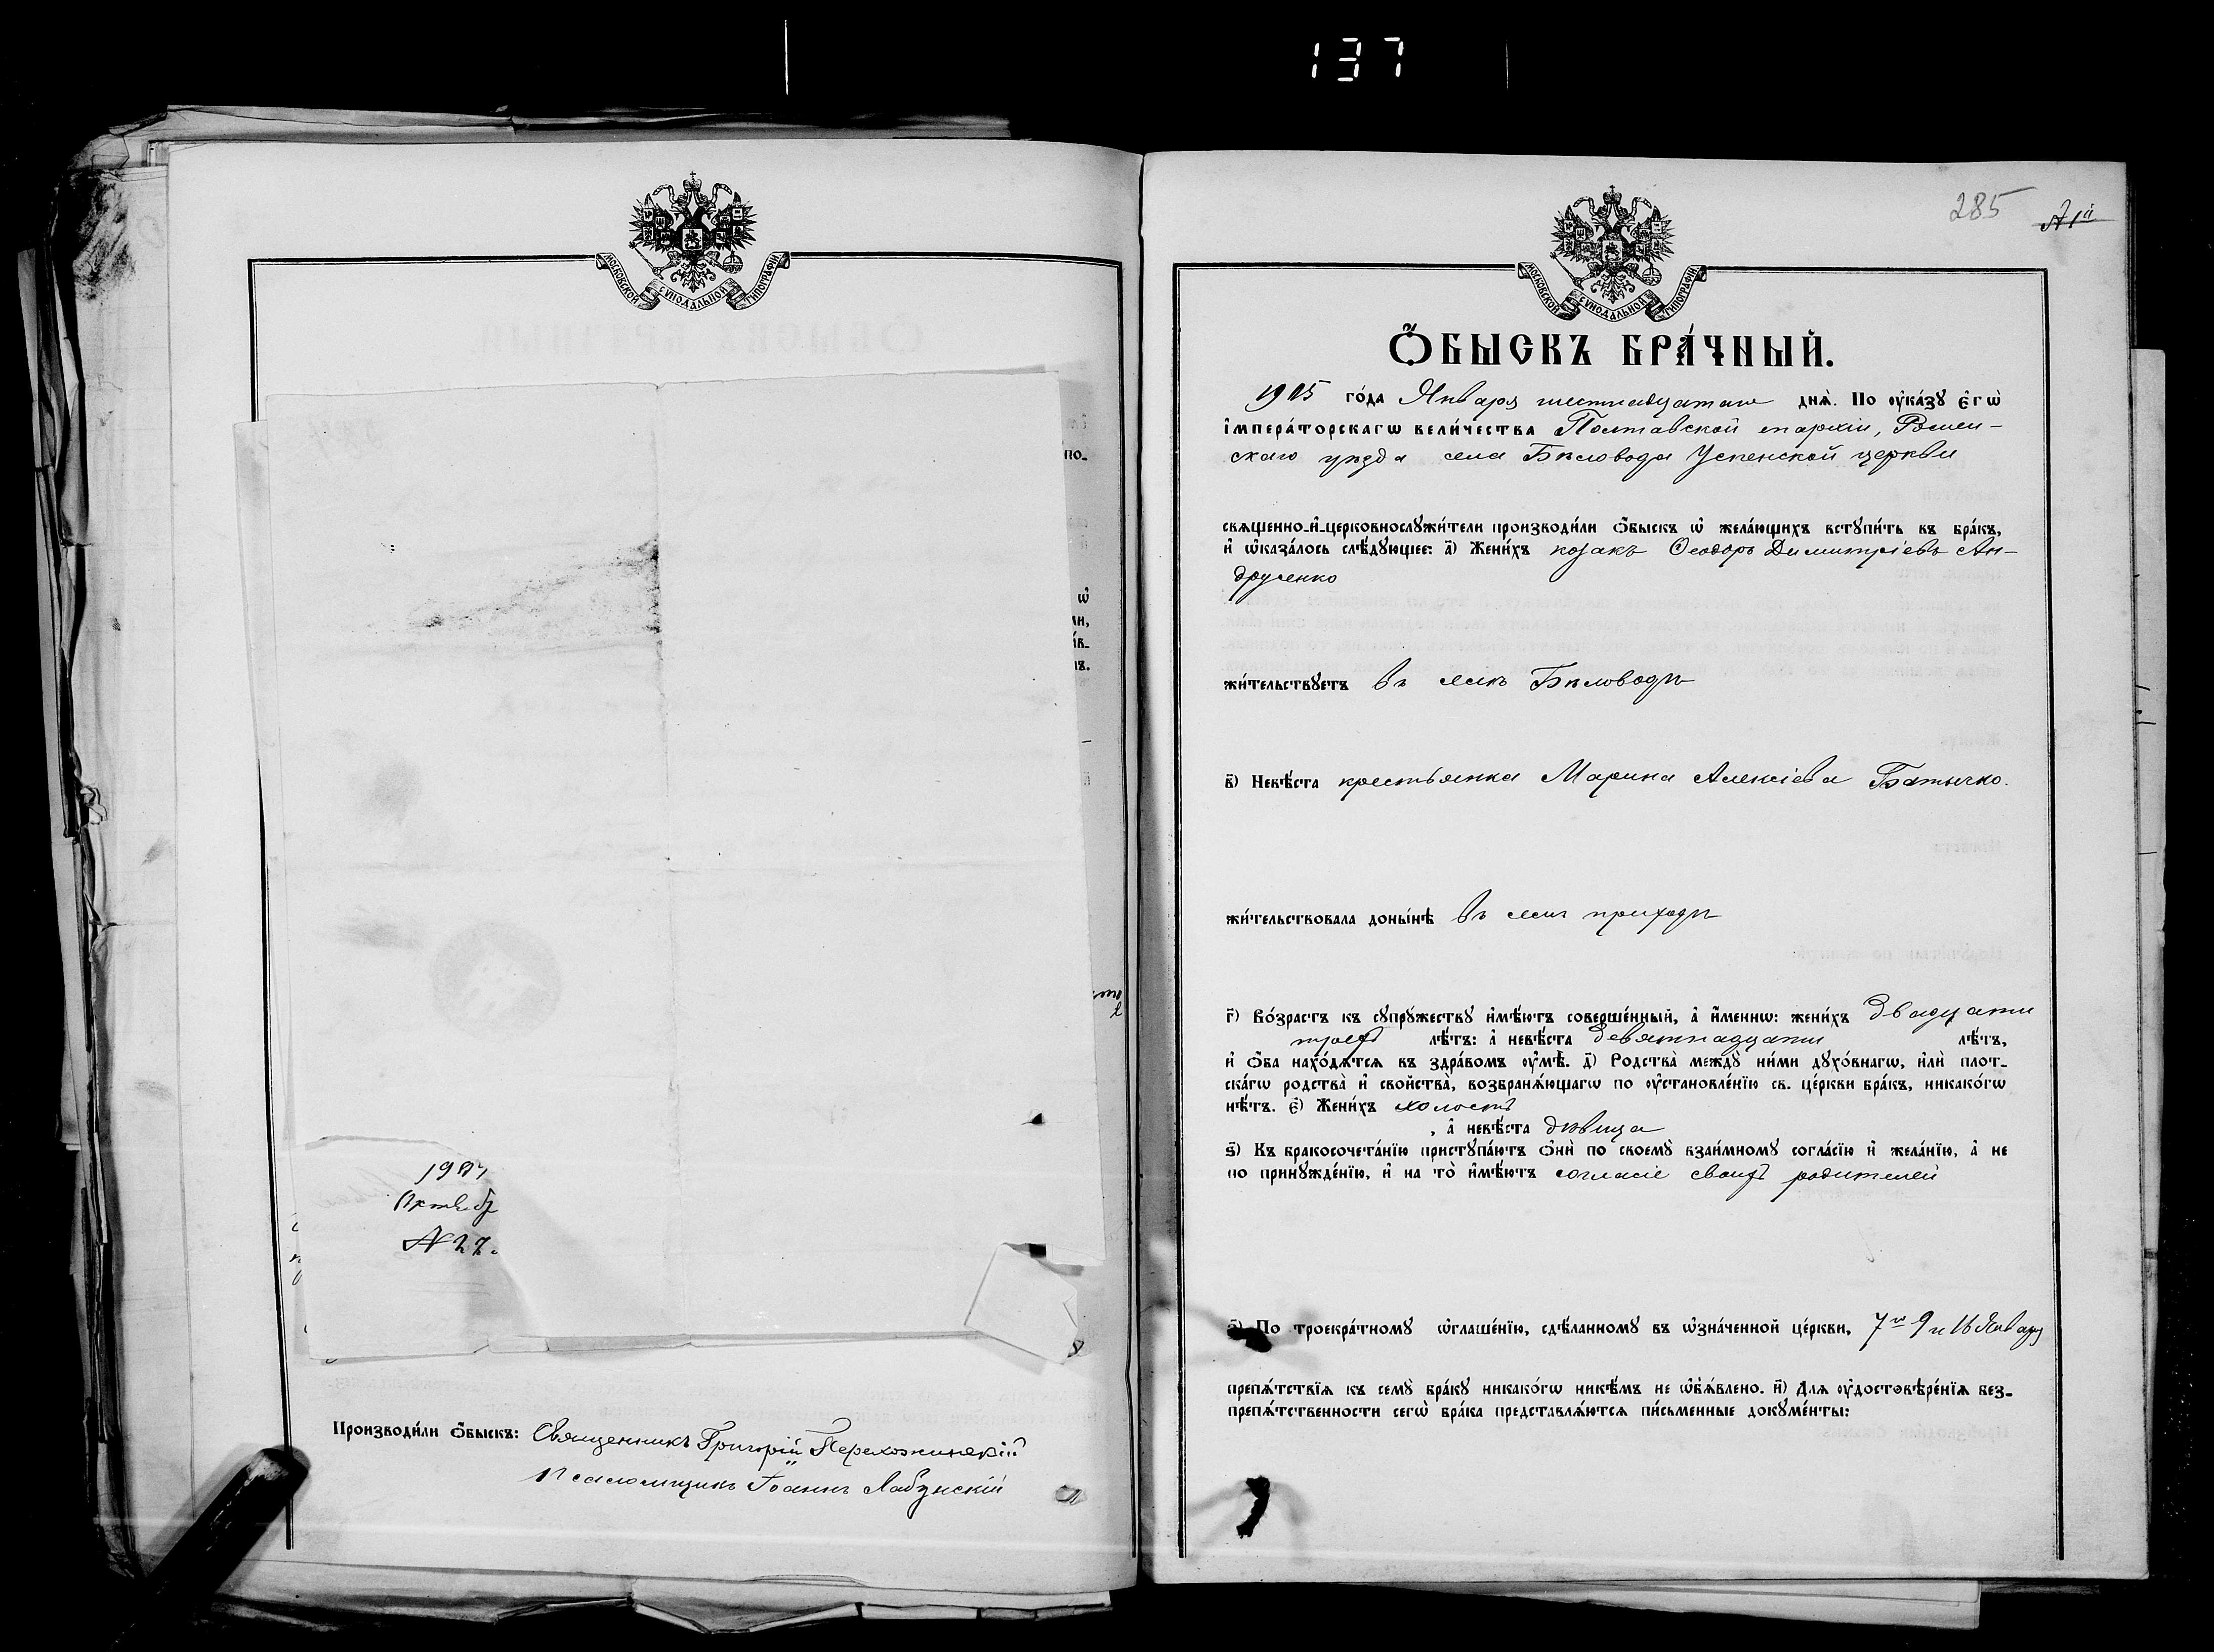 137
МОСКОВСКОЙ СѴНОДАЛЬНОЙ ТИПОГРАФІИ
по_
ѡ҆
1904
Октябр
№ 27.
Произво́дили ѻ҆́быскъ: Священникъ Григорій
Псаломщикъ Іоаннъ Лабунскій
285
№ 1й
МОСКОВСКОЙ СѴНОДАЛЬНОЙ ТИПОГРАФІИ
Ѻ҆́БЫСКЪ БРА́ЧНЫЙ.
1905 го́да Января шестнадцатаго днѧ̀. По ᲂу҆ка́зꙋ є҆гѡ̀
і҆мпера́торскагѡ вели́чества Полтавской епархіи, Ромен-
скаго уѣзда села Бѣловода Успенской церкви
свѧще́нно_и҆_церковнослꙋжи́тели производи́ли ѻ҆́быскъ ѡ҆ жела́ющихъ встꙋпи́ть въ бра́къ,
и҆ ѡ҆каза́лось слѣ́дꙋющее: а҃) Жени́хъ козакъ Ѳеодоръ Димитріевъ Ан-
друсенко
жи́тельствꙋетъ въ селѣ Бѣловодѣ
в҃) Невѣ́ста крестьянка Марина Алексіева
жи́тельствовала доны́нѣ въ сем приходѣ
г҃) Во́зрастъ къ сꙋпрꙋ́жествꙋ и҆мѣ́ютъ соверше́нный, а҆ и҆́меннѡ: жени́хъ двадцати
трехъ лѣ́тъ: а҆ невѣ́ста девятнадцати лѣ́тъ,
и҆ ѻ҆́ба нахо́дѧтсѧ въ здра́вомъ ᲂу҆мѣ̀. д҃) Родства̀ междꙋ̀ ни́ми дꙋхо́внагѡ, и҆лѝ плот_
ска́гѡ родства̀ и҆ свойства̀, возбранѧ́ющагѡ по ᲂу҆становле́нїю св. це́ркви бра́къ, никако́гѡ
нѣ́тъ. є҃) Жени́хъ холостъ
, а҆ невѣ́ста дѣвица
ѕ҃) Къ бракосочета́нїю пристꙋпа́ютъ ѻ҆нѝ по своемꙋ̀ взаи́мномꙋ согла́сїю и҆ жела́нїю, а҆ не
по принꙋжде́нїю, и҆ на то̀ и҆мѣ́ютъ согласіе своихъ родителей
По троекра́тномꙋ ѡ҆глаше́нїю, сдѣ́ланномꙋ въ ѡ҆зна́ченной це́ркви, 7го 9 и 16 Января
препѧ́тствїѧ къ семꙋ̀ бра́кꙋ никако́гѡ никѣ́мъ не ѡ҆б̾ѧ́влено. и҃) Длѧ ᲂу҆достовѣре́нїѧ без_
препѧ́тственности сегѡ̀ бра́ка представлѧ́ютсѧ пи́сьменные докꙋме́нты: